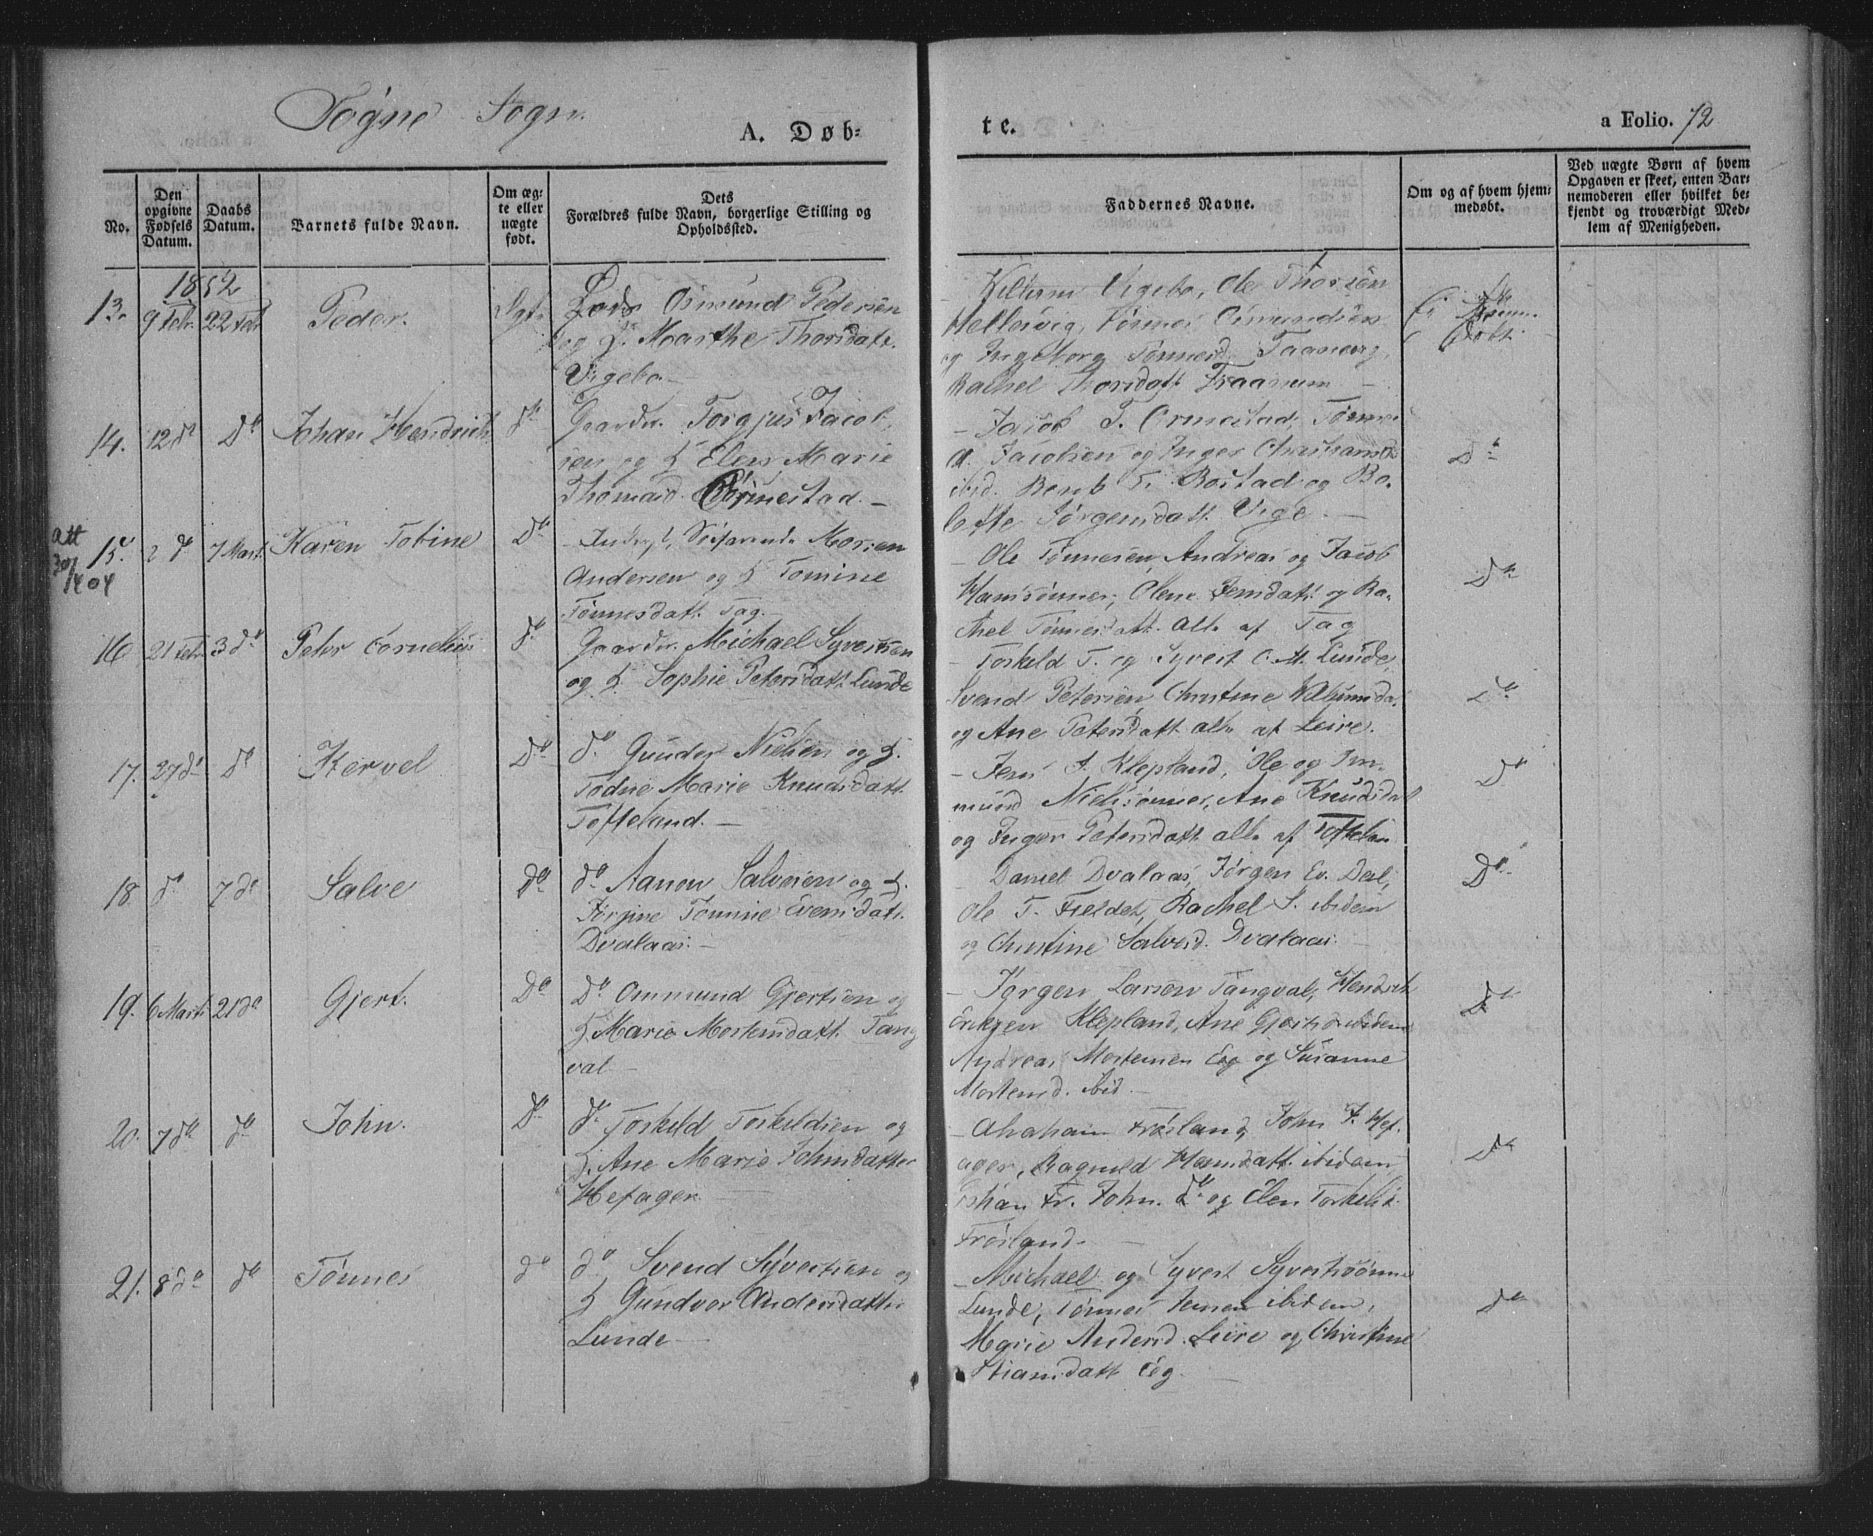 Søgne Sogn.
A. Døb-
te.
a Folio. 72
No.
Den opgivne Fødsels Datum.
Daabs Datum.
Barnets fulde Navn.
Om æg-te eller uægte født.
Dets Forældres fulde Navn, borgerlige Stilling og Opholdssted.
Faddernes Navne.
Om og af hvem hjem-medøbt.
Ved uægte Børn af hvem Opgaven er skeet, enten Bar-nemoderen eller hvilket be-kjendt og troværdigt Med-lem af Menigheden.
1852
13. 9 Febr. 22 Febr Peder. Ægt. Osmund Pedersen
og H. Marthe Thorsdatt.
Vigebo.
Vigebo, Ole Thorsen
Hellesvig, Tønnes Osmundsen
og Ingeborg Tønnesd. Taanevig,
Rachel Thorsdatt Fraanum
Ei hjem-
døbt
14. 12 do Do Johan Hendrich do Gaardbr. Torgjus Jacob-
sen og H Elen Marie
Thomasd. Ormestad.
Jacob T. Ormestad, Tønnes
A. Jacobsen og Inger Christiansd
ibid. Bernt T. Rostad og Bo-
lette Jørgensdatt. Vige.
Do
att 30/1 404
15. 2 do 7 Marts Karen Tobine Do Inderst, Søfarende Morten
Andersen og H Tomine
Tønnesdatt. Tag.
Ole Tønnesen, Andreas og Jacob
Hanssønner, Olene Jensdatt og Ra-
chel Tønnesdatt. alle af Tag
Do
16 21 Febr 3 do Peter Cornelius do Gaardbr. Michael Syvertsen
og H. Sophie Petersdatt Lunde
Torkeld T. og Syvert C. M. Lunde,
Svend Petersen, Christine
og Ane Petersdatt alle af Leire.
Do
17. 27 do Do Kervel Do do Gunder Nielsen og H.
Todne Marie Knudsdatt
Tofteland.
Jens A. Klepland, Ole og Om-
mund Nielssønner, Ane Knudsdat
og Inger Petersdatt alle af Toftelan
Do
18 do 7 do Salve Do do Aanon Salvesen og H.
Jørgine Tomine Evensdatt.
Dvalaas.
Daniel Dvalaas, Jørgen Ev. Dal,
Ole T. Fjeldet, Rachel S. ibidem
og Christine Salvesd. Dvalaas.
Do
19. 6 Marts 21 do Gjert. Do Do Ommund Gjertsen og
H. Marie Mortensdatt. Tang
val
Jørgen Larsen Tangval, Hendrik
Eriksen Klepland, Ane Gjertsd ibidem
Andreas Mortensen Eeg og Susanne
Mortensd. ibid.
Do
20. 7 do do John. Do do Torkeld Torkeldsen og
H. Ane Marie Johnsdatter
Høfager
Abraham Frøsland, John J. Høf-
ager, Ragnild Hansdatt. ibidem
Johan Fr. John. do og Elen Torkelsd
Frøsland.
Do
21. 8 do do Tønnes do do Svend Syvertsen og
H Gundvor Andersdatter
Lunde
Michael og Syvert Syvertssønner
Lunde, Tønnes Jensen ibidem,
Marie Andersd. Leire og Christine
Stiansdatt Eeg.
do